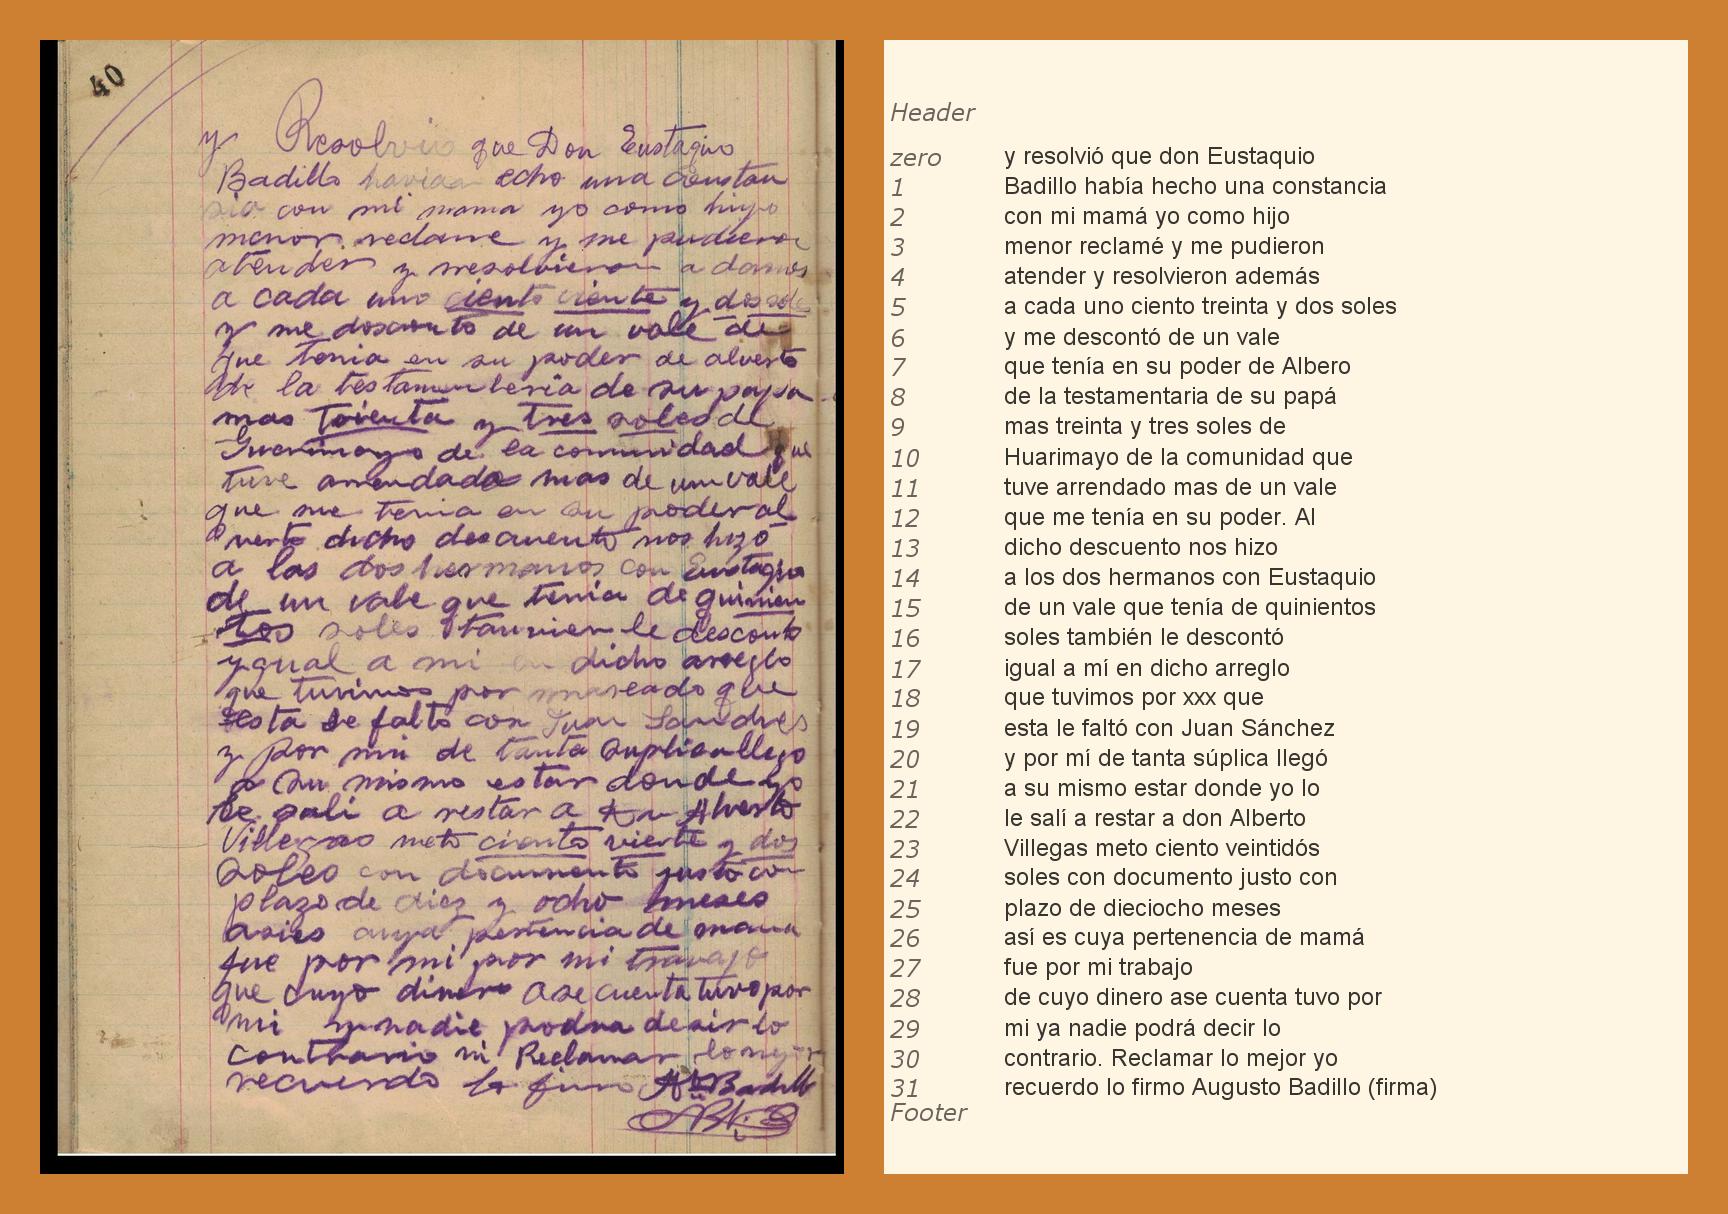 40
y Resolvio que Don Eustaquio
Badillo havian echo una constan
sia con mi mama yo como hijo
menor reclame y me pudieron
atender y rresolvieron a darnos
a cada uno ciento viente y dos soles
y me desconto de un vale de
que tenia en su poder de alverto
de la testamenteria de su papa
mas trienta y tres soles de
Guarimayo de la comunidad que
tuve arrendado mas de un vale
que me tenia en su poder al
verto dicho descuento nos hizo
a los dos hermanos con Eustaquio
de un vale que tenia de quinien
tos soles tanvien le desconto
ygual a mi en dicho arreglo
que tuvimos por que
esta le falto con Juan Sandres
y por mi de tanta suplica llego
a su mismo estar donde yo
le sali a restar a Dn Alverto
Villegas meto ciento viente y dos
Soles con documento justo con
plazo de diez y ocho meses
asies cuya pertencia de mama
fue por mi por mi travajo
que cuyo dinero ase cuenta tuvo por
mi y nadie podra desir lo
contrario ni Reclamar lo mejor
recuerdo lo firmo Badillo
Header
zero y resolvió que don Eustaquio
1 Badillo había hecho una constancia
2 con mi mamá yo como hijo
3 menor reclamé y me pudieron
4 atender y resolvieron además
5 a cada uno ciento treinta y dos soles
6 y me descontó de un vale
7 que tenía en su poder de Albero
8 de la testamentaria de su papá
9 mas treinta y tres soles de
10 Huarimayo de la comunidad que
11 tuve arrendado mas de un vale
12 que me tenía en su poder. Al
13 dicho descuento nos hizo
14 a los dos hermanos con Eustaquio
15 de un vale que tenía de quinientos
16 soles también le descontó
17 igual a mí en dicho arreglo
18 que tuvimos por xxx que
19 esta le faltó con Juan Sánchez
20 y por mí de tanta súplica llegó
21 a su mismo estar donde yo lo
22 le salí a restar a don Alberto
23 Villegas meto ciento veintidós
24 soles con documento justo con
25 plazo de dieciocho meses
26 así es cuya pertenencia de mamá
27 fue por mi trabajo
28 de cuyo dinero ase cuenta tuvo por
29 mi ya nadie podrá decir lo
30 contrario. Reclamar lo mejor yo
31 recuerdo lo firmo Augusto Badillo (firma)
Footer